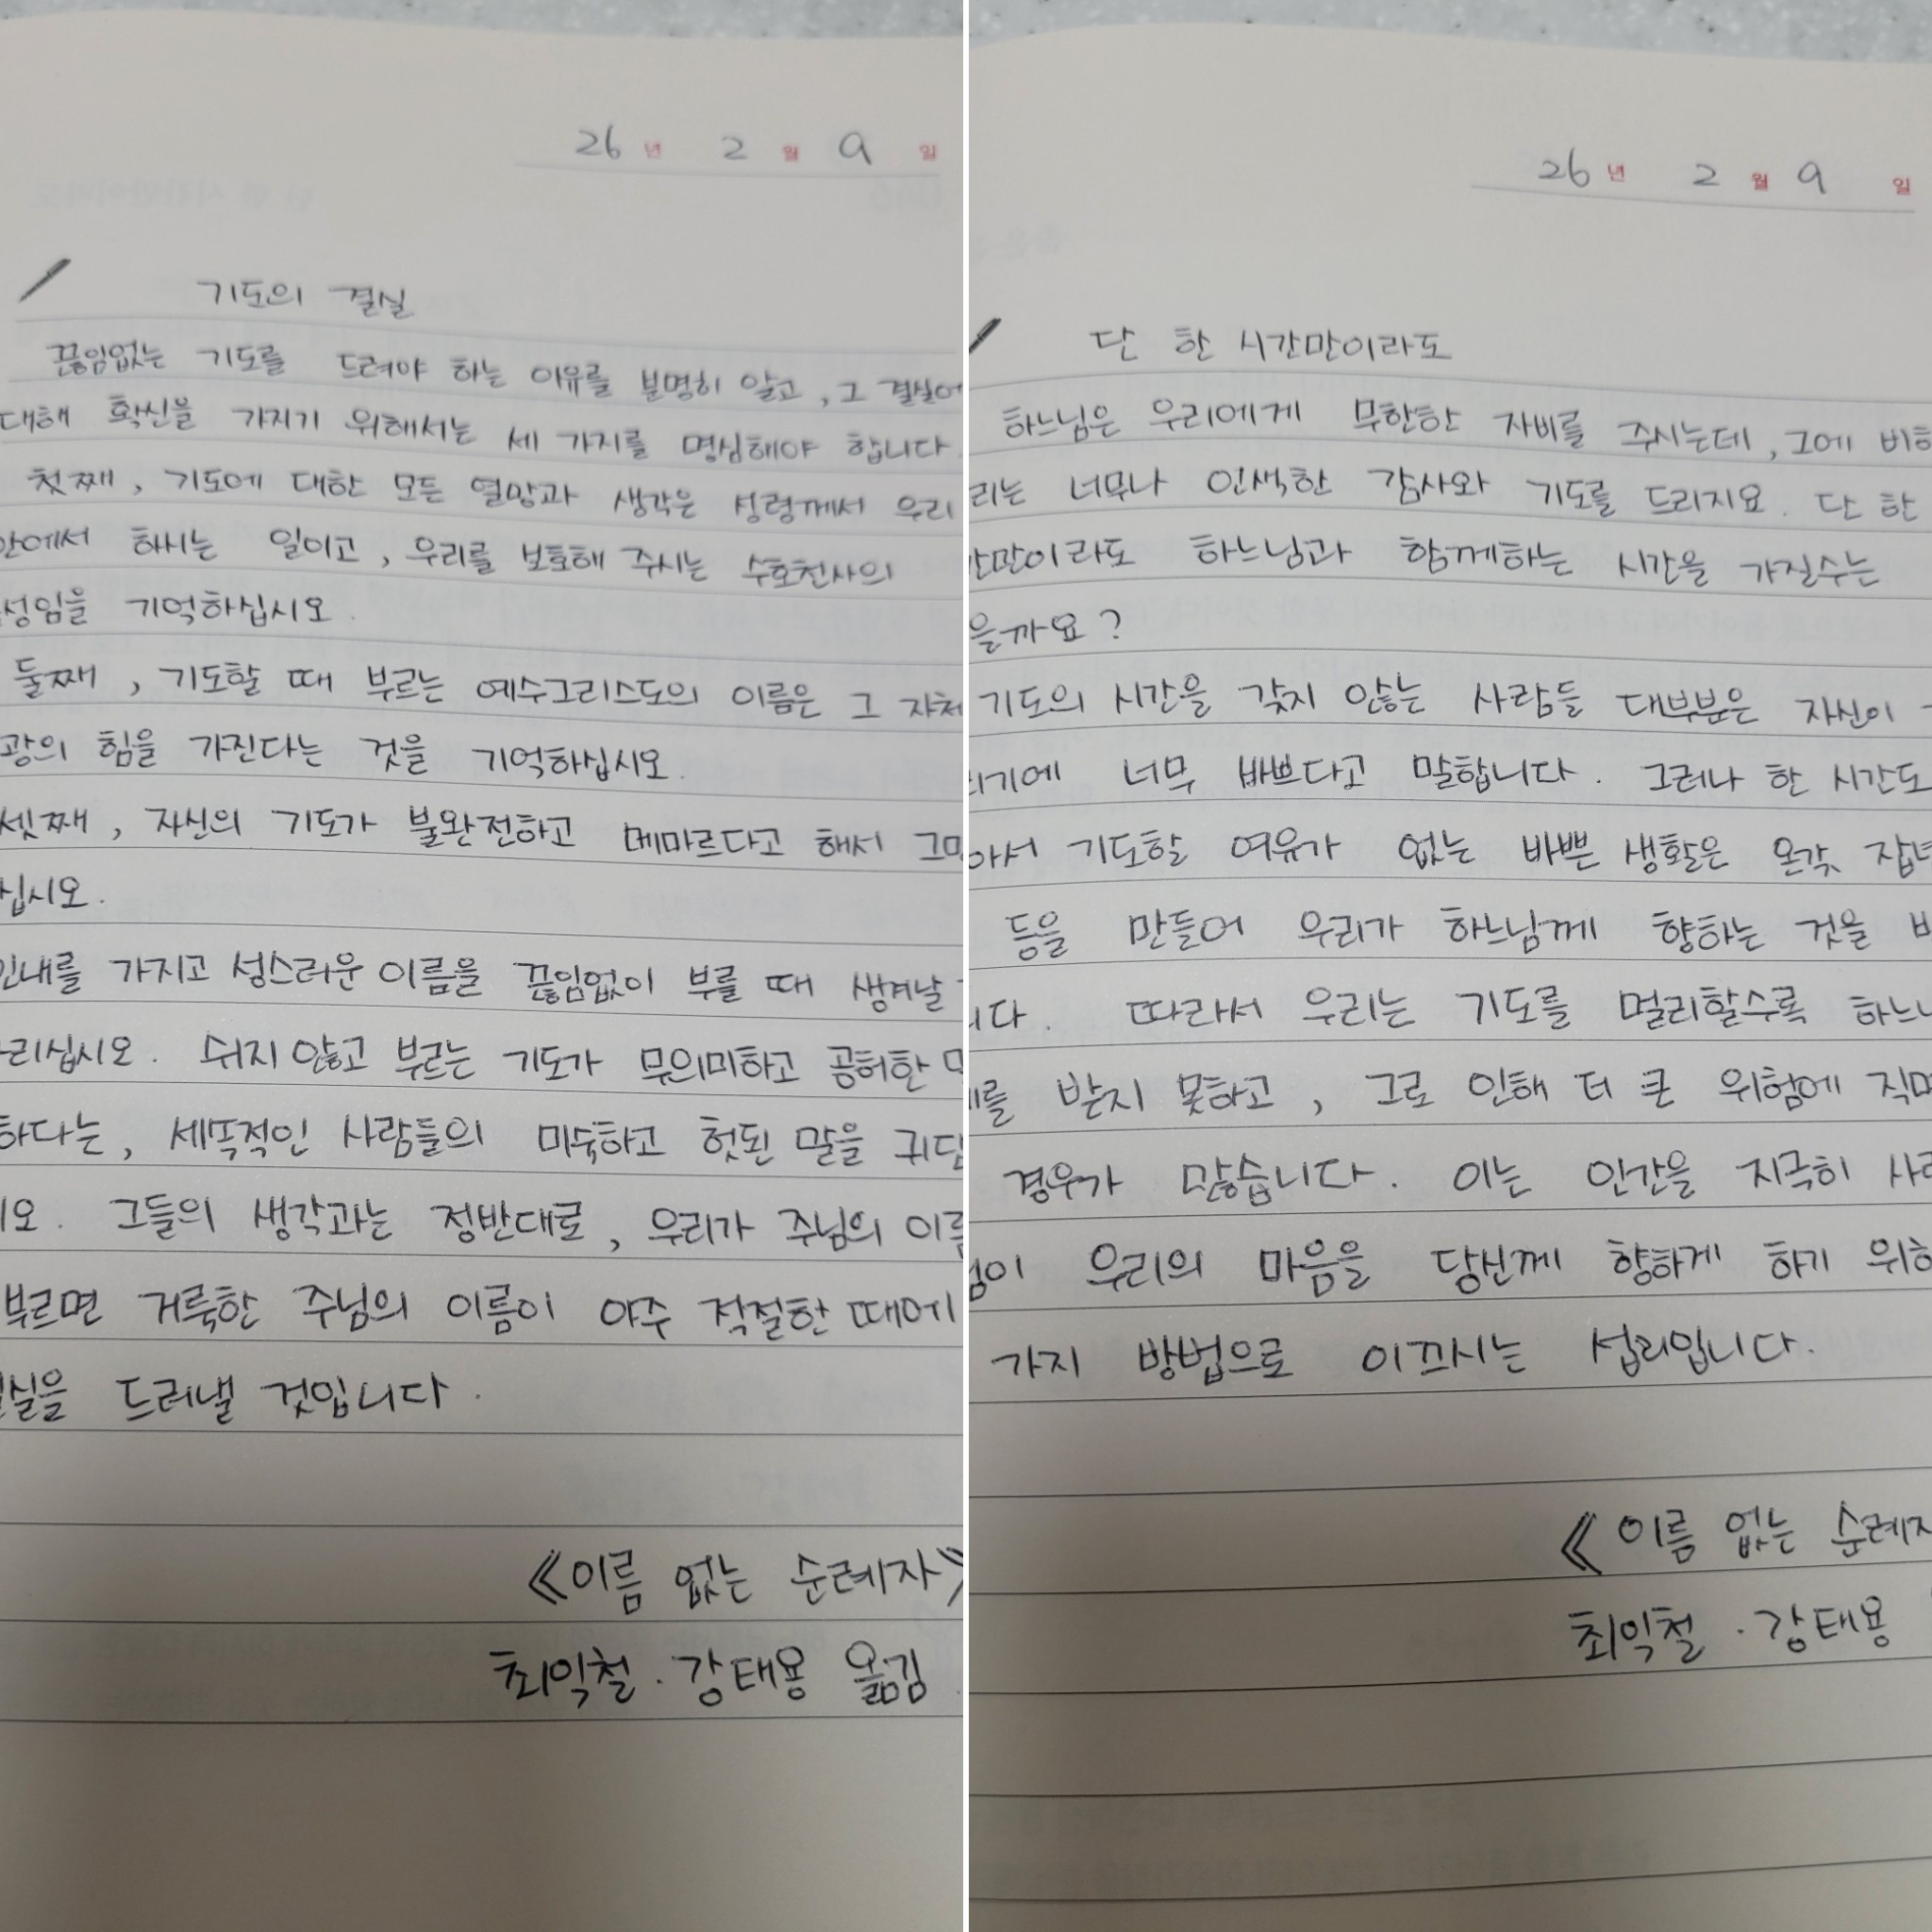 26 년 2 월 9 일
기도의 결실
끊임없는 기도를 드려야 하는 이유를 분명히 알고, 그 결실에
대해 확신을 가지기 위해서는 세 가지를 명심해야 합니다.
첫째, 기도에 대한 모든 열망과 생각은 성령께서 우리
안에서 하시는 일이고, 우리를 보호해 주시는 수호천사의
성임을 기억하십시오.
둘째, 기도할 때 부르는 예수그리스도의 이름은 그 자체
광의 힘을 가진다는 것을 기억하십시오.
셋째, 자신의 기도가 불완전하고 메마르다고 해서
십시오.
인내를 가지고 성스러운 이름을 끊임없이 부를 때 생겨날
리십시오. 쉬지 않고 부르는 기도가 무의미하고 공허한
하다는, 세속적인 사람들의 미숙하고 헛된 말을
오. 그들의 생각과는 정반대로, 우리가 주님의 이름
부르면 거룩한 주님의 이름이 아주 적절한 때에
실을 드러낼 것입니다.
《이름 없는 순례자》
최익철 · 강태용 옮김
26 년 2 월 9 일
단 한 시간만이라도
하느님은 우리에게 무한한 자비를 주시는데, 그에 비해
리는 너무나 인색한 감사와 기도를 드리지요. 단 한
간만이라도 하느님과 함께하는 시간을 가질수는
을까요?
기도의 시간을 갖지 않는 사람들 대부분은 자신이
기에 너무 바쁘다고 말합니다. 그러나 한 시간도
아서 기도할 여유가 없는 바쁜 생활은 온갖
등을 만들어 우리가 하느님께 향하는 것을
니다. 따라서 우리는 기도를 멀리할수록
를 받지 못하고, 그로 인해 더 큰 위험에
경우가 많습니다. 이는 인간을 지극히
님이 우리의 마음을 당신께 향하게 하기 위해
가지 방법으로 이끄시는 섭리입니다.
《이름 없는 순례자
최익철 · 강태용